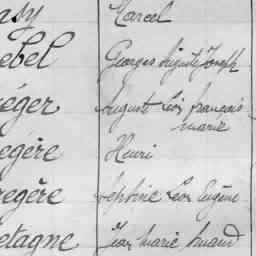 asy Marcel
ebel Georges Auguste Joseph
éger Auguste Léon françois
marie
egère Henri
regère Léon Eugène
etagne Jean marie Amand